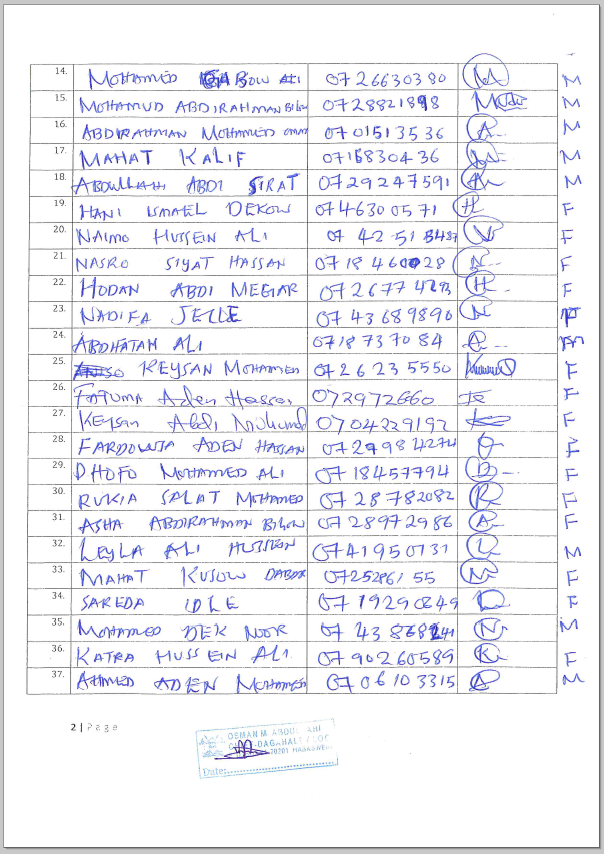 14. MOHAMED GABOW ALI 0726630380 M M
15. MOHAMUD ABDIRAHMAN 0728821898 M
16. ABDIRAHMAN MOHAMED OMAR 0701513536 A M
17. MAHAT KALIF 0716830436 M
18. ABDULLAHI ABDI SIRAT 0729247591 A M
19. HANI ISMAEL DEKOW 0746300571 H F
20. NAIMO HUSSEIN ALI N F
21. NASRO SIYAT HASSAN N F
22. HODAN ABDI MEGAR H F
23. NADIFA JELLE 0743689890 N F
24. ABDHATAH ALI 0718737084 A M
25. KEYSAN MOHAMED 0726235550 F
26. FATUMA Aden Hassan 072972660 F
27. KEYSAN Abdi Mohamed 0704229192 F
28. FARDOWSA ADEN HASSAN 0729984274 F
29. DHOFO MOHAMED ALI 0718457794 D F
30. RUKIA SALAT MOHAMED 0728782082 R F
31. ASHA ABDIRAHMAN 0728972986 A F
32. LEYLA ALI HUSSEIN 0741950731 L M
33. MAHAT KUSOW 0725286155 M F
34. SAREDA IDLE 0719290849 F
35. MOHAMED DEK NOOR N M
36. KATRA HUSSEIN ALI 0790260589 K F
37. AHMED ADEN MOHAMED 0706103315 A M
2 | Page
OSMAN M ABDULLAHI
DAGAHALEY LOC
70201
Date: